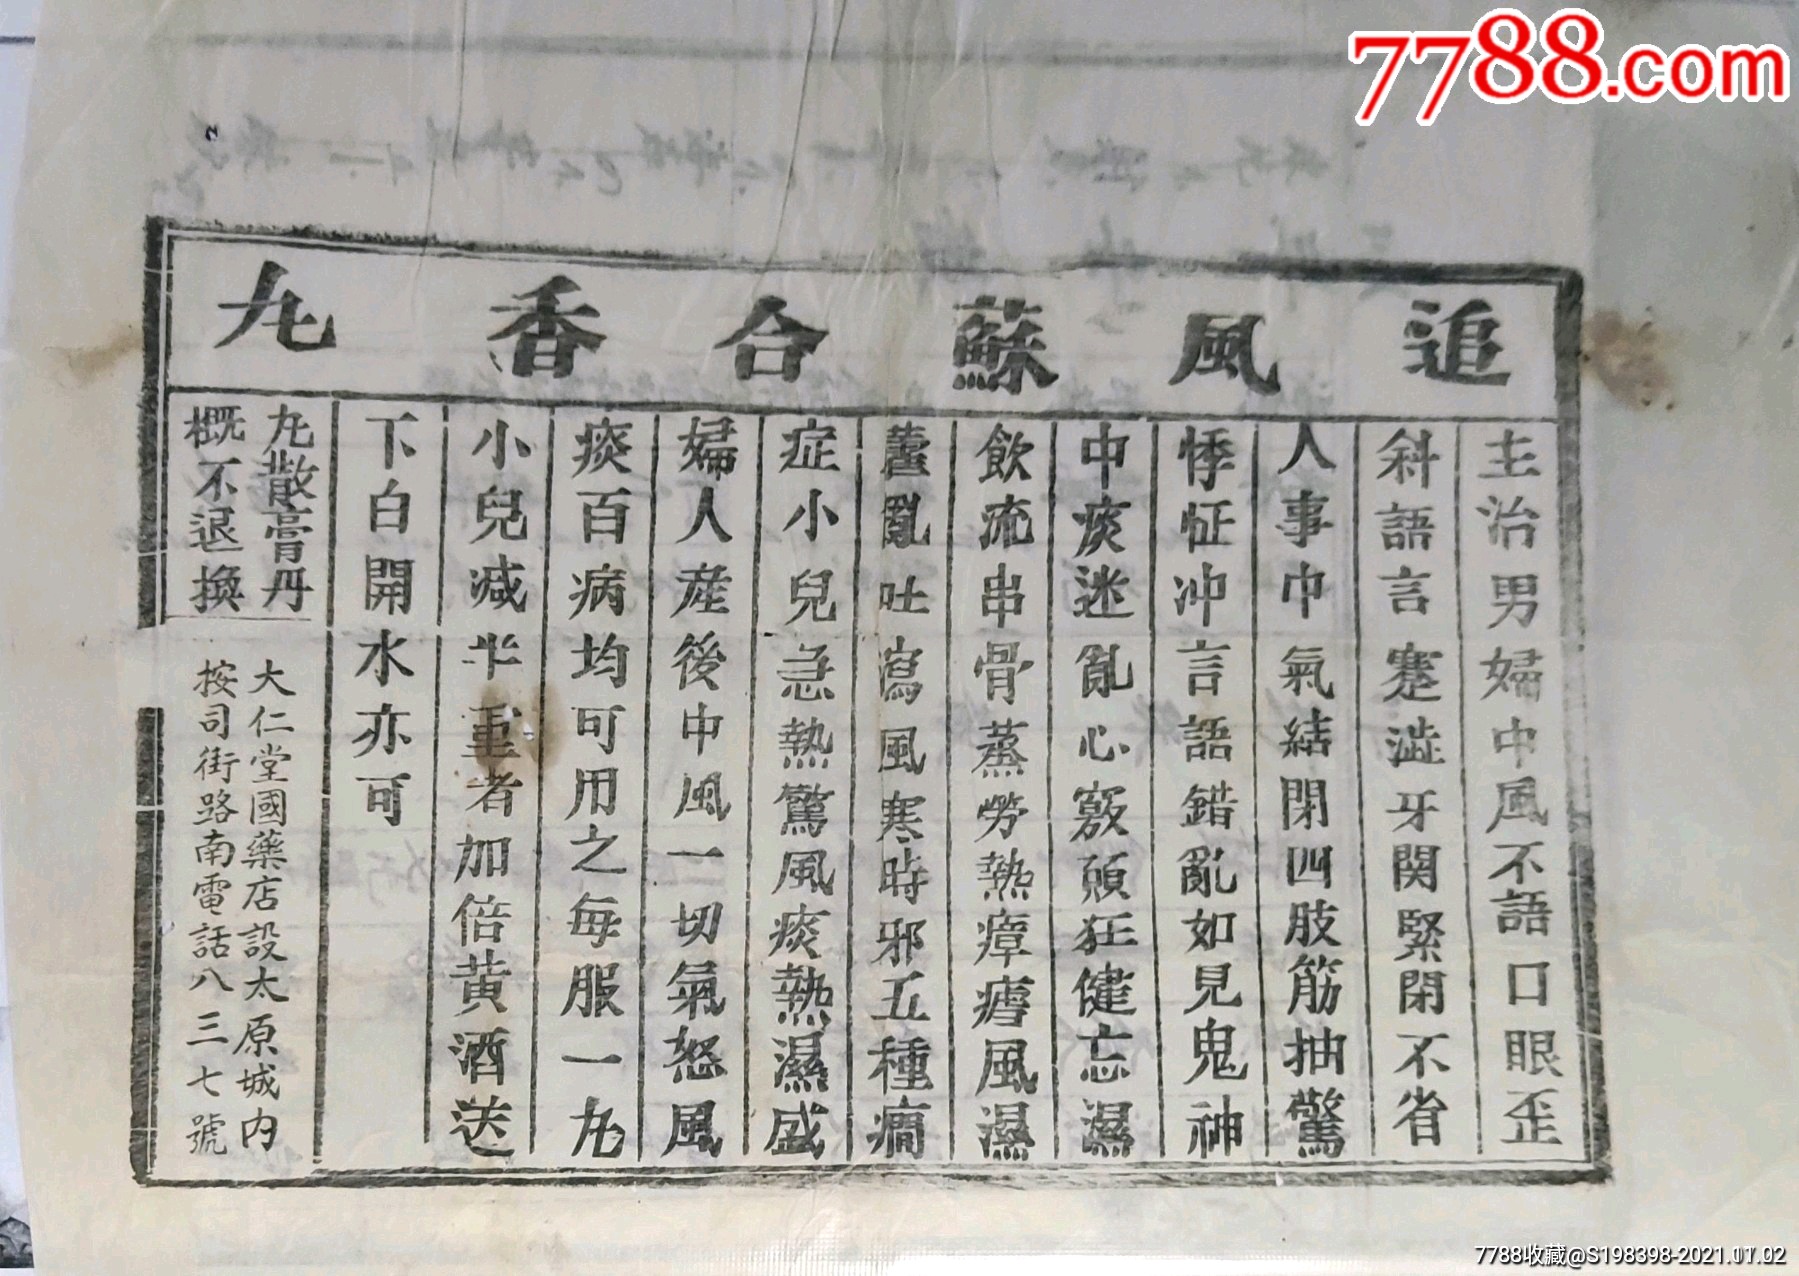 7788.com
追風蘇合香丸
主治男婦中風不語口眼歪
斜語言蹇澁牙関緊閉不省
人事中氣結閉四肢筋抽驚
悸怔冲言語錯亂如見鬼神
中痰迷亂心竅頭狂健忘濕
飲流串骨蒸勞熱瘴瘧風濕
藿亂吐瀉風寒時邪五種癇
症小兒急熱驚風痰熱濕盛
婦人産後中風一切氣怒風
痰百病均可用之每服一丸
小兒减半重者加倍黄酒送
下白開水亦可
丸散膏丹
概不退換
大仁堂國藥店設太原城内
按司街路南電話八三七號
7788收藏@S198398-2021.